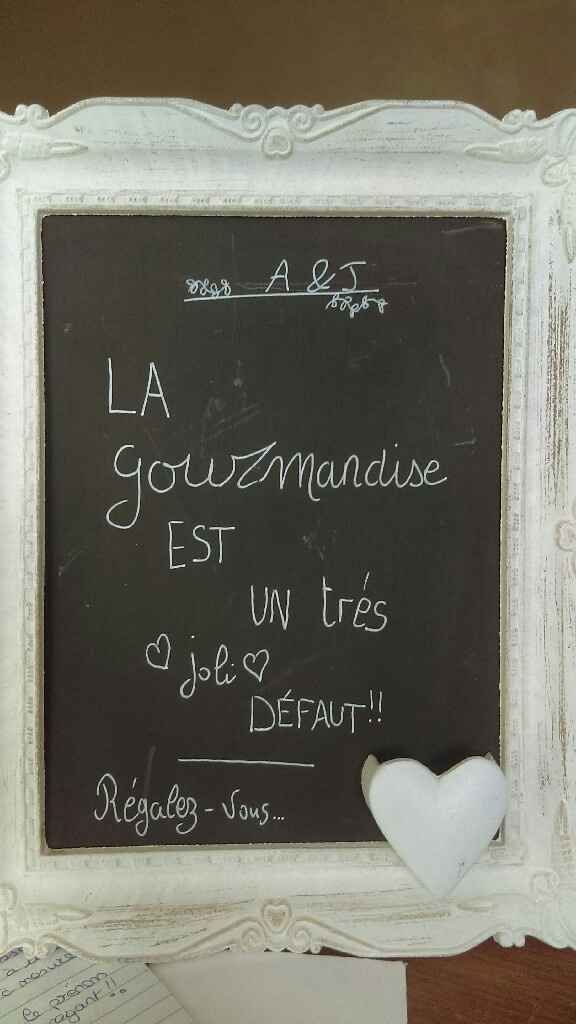 A & J
LA
gourmandise
EST
UN trés
joli
DÉFAUT!!
Régalez-vous...
à
mesure
le prénom